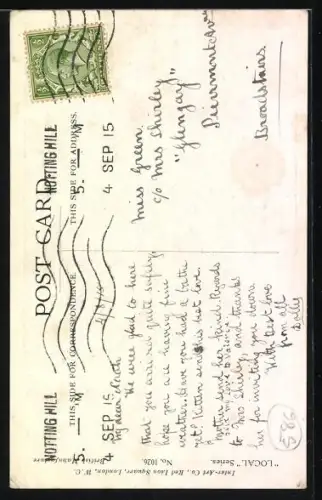 POST CARD
THIS SIDE FOR CORRESPONDENCE.
THIS SIDE FOR ADDRESS.
NOTTING HILL
5. M
4 SEP 15
NOTTING HILL
5. M
4 SEP 15
Miss Green
c/o Mrs Shirley
"Glengay"
Pierremont Av
Broadstairs.
4/9/15
My dear
We were glad to hear
that you arrived quite safely,
hope you are having fine
weather. Have you had a bathe
yet? Kitten sends his best love.
Mother send her kind Regards
to Mrs Shirley, and thanks
her for inviting you down
With best love
from all
586
"LOCAL" Series.
No. 1026.
British Manufacture
Inter-Art Co., Red Lion Square, London, W.C.